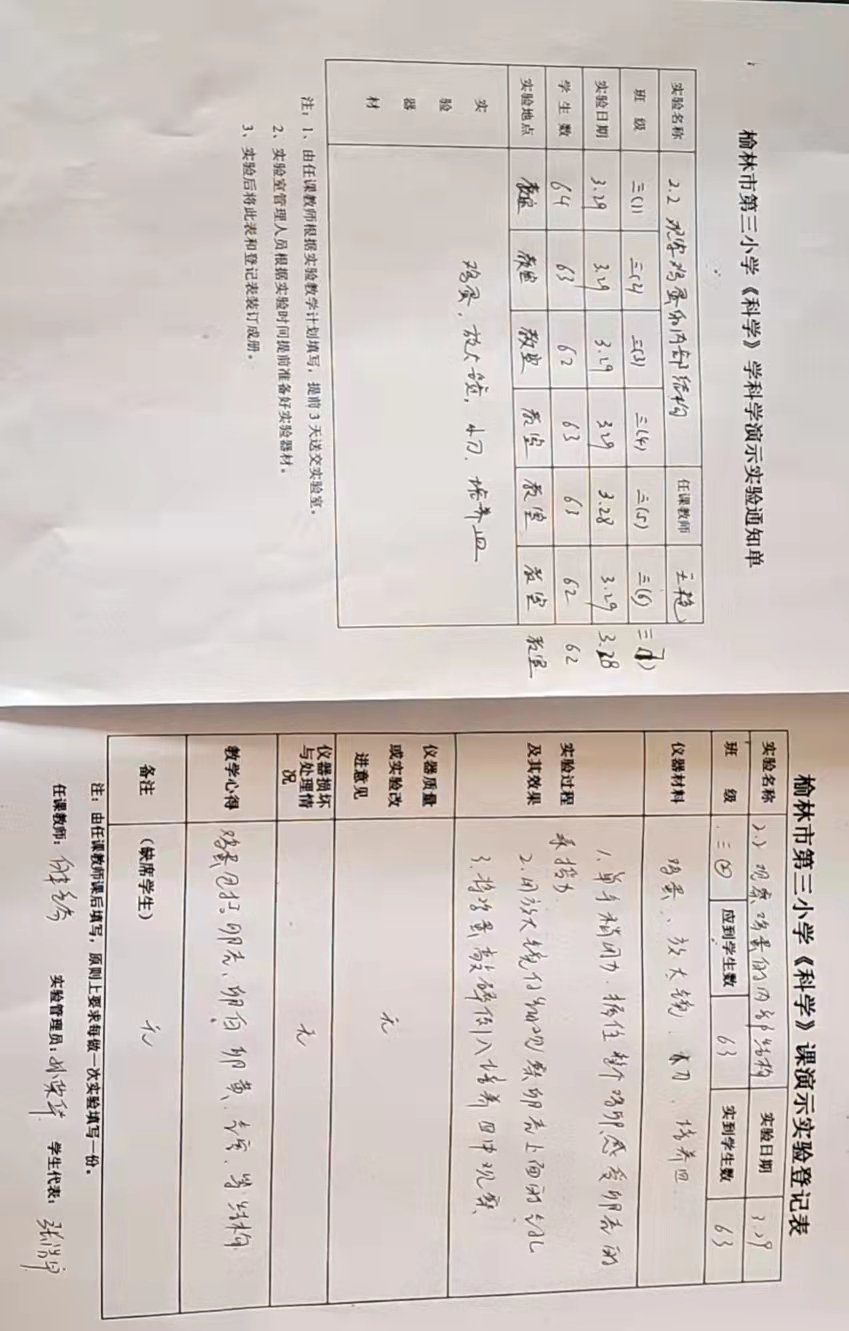 榆林市第三小学《科学》学科学演示实验通知单
实验名称 2.2 观察鸡蛋的内部结构 任课教师
班 级 三(1) 三(2) 三(3) 三(4) 三(5) 三(6) 三(7)
实验日期 3.29 3.29 3.29 3.29 3.28 3.29 3.28
学 生 数 64 63 62 63 63 62 62
实验地点 教室 教室 教室 教室 教室 教室 教室
实验器材 鸡蛋、放大镜、小刀、培养皿
注：1、由任课教师根据实验教学计划填写，提前 3 天送交实验室。
2、实验室管理人员根据实验时间提前准备好实验器材。
3、实验后将此表和登记表装订成册。
榆林市第三小学《科学》课演示实验登记表
实验名称 2.2 观察鸡蛋的内部结构 实验日期 3.29
班 级 三② 应到学生数 63 实到学生数 63
仪器材料 鸡蛋、放大镜、小刀、培养皿
实验过程及其效果 1.单手稍用力.握住整个鸡卵感受卵壳的
承担力
2.用放大镜仔细观察卵壳上面的气孔
3.将鸡蛋敲碎倒入培养皿中观察
仪器质量或实验改进意见 无
仪器损坏与处理情况 无
教学心得 鸡蛋包括卵壳、卵白、卵黄、气室、等结构
备注 （缺席学生） 无
注：由任课教师课后填写，原则上要求每做一次实验填写一份。
任课教师： 实验管理员： 学生代表：